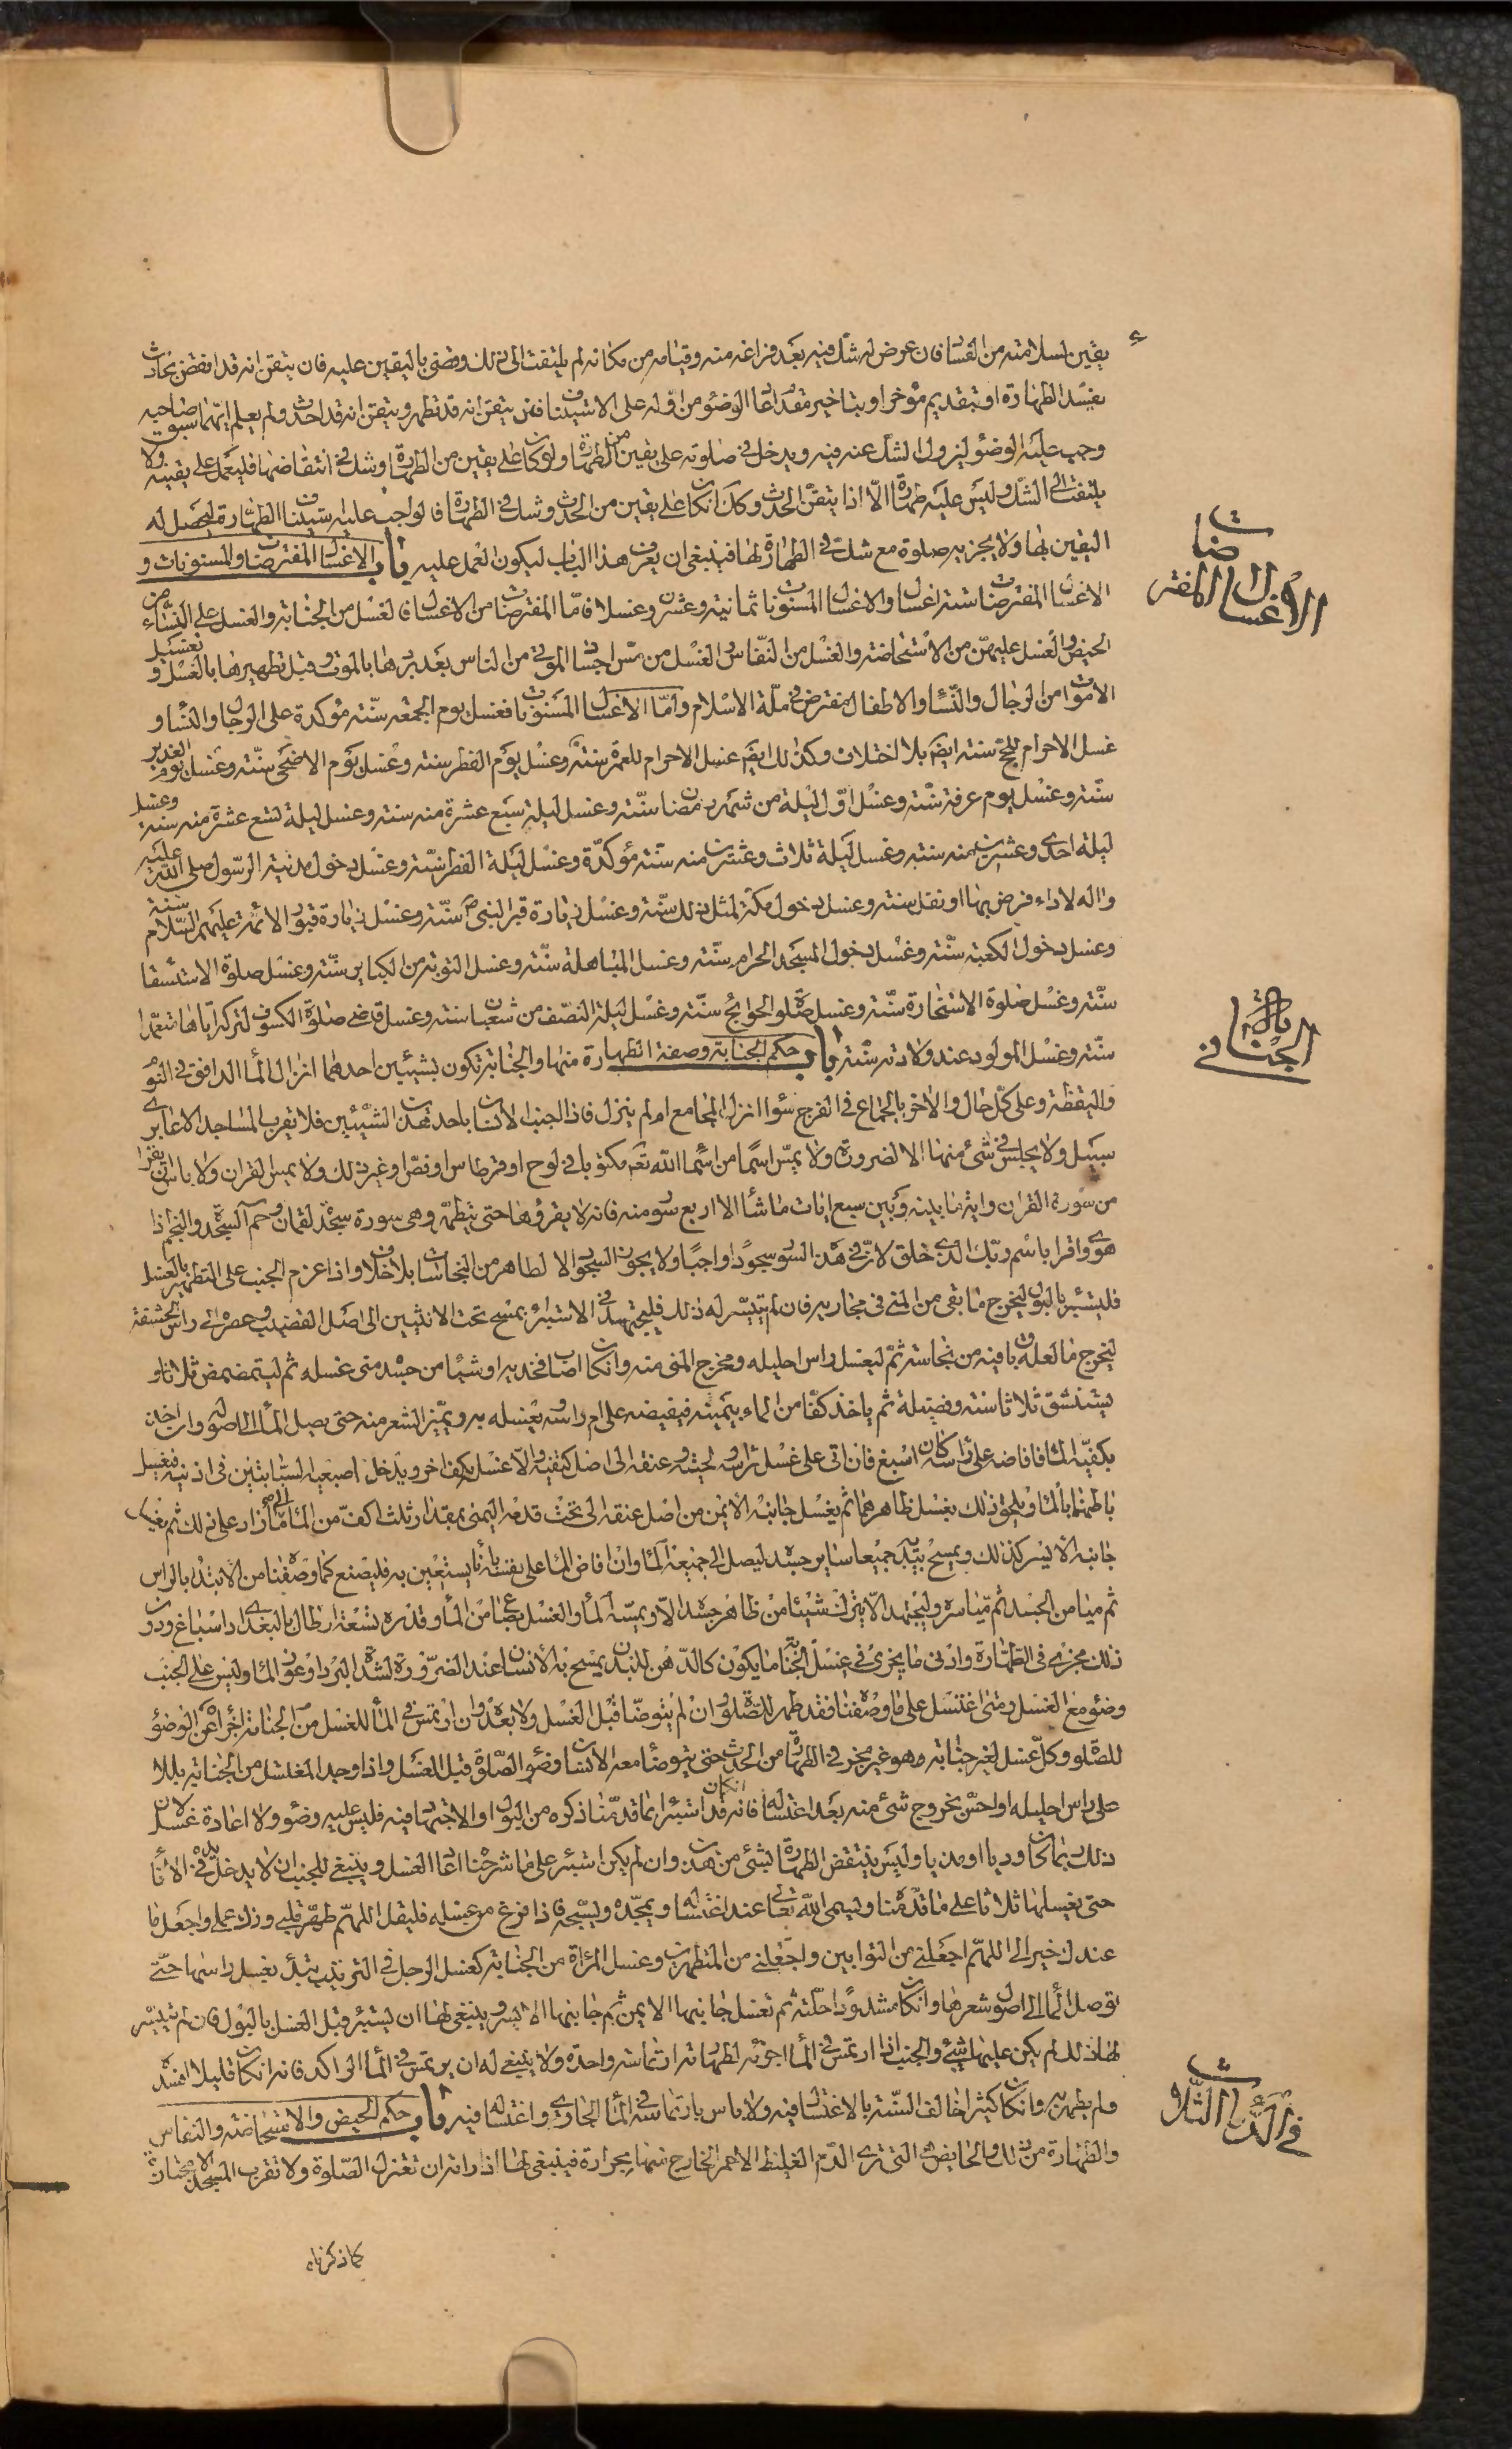 يقين لسلامته من الفسا فان عرض له شك فيه بعد فراغه منه وقيامه من مكانه لم يلتفت الى ذلك وقضى باليقين عليه فان يتقن انه قد انتقض بحادث
يفسد الطهارة او بتقديم مؤخر او بتاخير مقدم اعاد الوضوء من اوله على الاستيناف فان يتقن انه قد تطهر ويتقن انه قد احدث ولم يعلم ايهما سبق صاحبه
وجب عليه الوضوء ليزول الشك عنه فيه ويدخل في صلوته على يقين من الطهارة ولو كان على يقين من الطهارة وشك في انتقاضها فليعمل على يقينه ولا
يلتفت الى الشك وليس عليه طهارة الا اذا يتقن الحدث وكك ان كان على يقين من الحدث وشك في الطهارة فالواجب عليه استيناف الطهارة ليحصل له
اليقين بها ولا يجزيه صلوة مع شك في الطهارة لها فينبغي ان يعرف هذا الباب ليكون العمل عليه باب الاغسال المفترضات والمسنونات و
الاغسال المفترضات ستة اغسال والاغسال المسنونات ثمانية وعشرون غسلا فاما المفترضات من الاغسال فالغسل من الجنابة والغسل على النساء من
الحيض والغسل عليهن من الاستحاضة والغسل من النفاس والغسل من مس اجساد الموتى من الناس بعد بردها بالموت وقبل تطهيرها بالغسل وتغسيل
الاموات من الرجال والنساء والاطفال مفترض في ملة الاسلام واما الاغسال المسنونات فغسل يوم الجمعة سنة مؤكدة على الرجال والنساء و
غسل الاحرام للحج سنة ايضا بلا اختلاف وكذلك ايضا غسل الاحرام للعمرة سنة وغسل يوم الفطر سنة وغسل يوم الاضحى سنة وغسل يوم الغدير
سنة وغسل يوم عرفة سنة وغسل اول ليلة من شهر رمضان سنة وغسل ليلة سبع عشرة منه سنة وغسل ليلة تسع عشرة منه سنة وغسل
ليلة احدى وعشرين منه سنة وغسل ليلة ثلاث وعشرين منه سنة مؤكدة وغسل ليلة الفطر سنة وغسل دخول مدينة الرسول صلى الله عليه
واله لاداء فرض بها او نفل سنة وغسل دخول مكة لمثل ذلك سنة وغسل زيارة قبر النبي ص سنة وغسل زيارة قبور الائمة عليهم السلام سنة
وغسل دخول الكعبة سنة وغسل دخول المسجد الحرام سنة وغسل المباهلة سنة وغسل التوبة من الكباير سنة وغسل صلوة الاستسقا
سنة وغسل صلوة الاستخارة سنة وغسل صلوة الحوائج سنة وغسل ليلة النصف من شعبان سنة وغسل قاضي صلوة الكسوف لتركه اياها متعمدا
سنة وغسل المولود عند ولادته سنة باب حكم الجنابة وصفة الطهارة منها والجنابة تكون بشيئين احدهما انزال الماء الدافق في النوم
واليقظة وعلى كل حال والاخر بالجماع في الفرج سواء انزل المجامع او لم ينزل فاذا اجنب الانسان باحد هذين الشيئين فلا يقرب المساجد الا عابري
سبيل ولا يجلس في شئ منها الا لضرورة ولا يمس اسما من اسماء الله تعالى مكتوبا في لوح او قرطاس او فص او غير ذلك ولا يمس القران ولا باس ان يقرا
من سورة القران واية ما بينه وبين سبع ايات ما شاء الا اربع سور منه فانه لا يقرؤها حتى يتطهر وهى سورة سجدة لقمان وحم السجدة والنجم اذا
هوى واقرا باسم ربك الذى خلق لان في هذه السور سجودا واجبا ولا يجوز السجود الا لطاهر من النجاسات بلا خلاف واذا عزم الجنب على التطهير بالغسل
فليستبرا بالبول ليخرج ما بقى من المنى في مجاريه فان لم يتيسر له ذلك فليجتهد في الاستبراء بمسح تحت الانثيين الى اصل القضيب وعصره الى راس الحشفة
ليخرج ما لعله باق فيه من نجاسة ثم ليغسل راس احليله ومخرج المنى منه وان كان اصاب فخذيه او شيئا من جسده منى غسله ثم ليتمضمض ثلاثا و
يستنشق ثلاثا سنة وفضيلة ثم ياخذ كفا من الماء بيمينه فيفيضه على ام راسه ويغسله به ويميز الشعر منه حتى يصل الماء الى اصوله وان اخذ
بكفيه الماء فافاضه على راسه كان اسبغ فان اتى على غسل راسه ولحيته وعنقه الى اصل كتفيه والا غسل بكف اخر ويدخل اصبعيه السبابتين في اذنيه فيغسل
باطنهما بالماء ويلحق ذلك بغسل ظاهرهما ثم يغسل جانبه الايمن من اصل عنقه الى تحت قدمه اليمنى بمقدار ثلث اكف من الماء الى ما زاد على ذلك ثم يغسل
جانبه الايسر كذلك ويمسح بيديه جميعا ساير جسده ليصل الى جميعه الماء وان افاض الماء على نفسه باناء يستعين به فليصنع كما وصفنا من الابتداء بالراس
ثم ميامن الجسد ثم مياسره وليجتهد الا يترك شيئا من ظاهر جسده الا ويمسه الماء والغسل بصاع من الماء وقدره تسعة ارطال بالبغدادى اسباغ ودون
ذلك مجزى في الطهارة وادنى ما يجزى في غسل الجنابة ما يكون كالدهن للبدن يمسح به الانسان عند الضرورة لشدة البرد او عوز الماء وليس على الجنب
وضوء مع الغسل ومتى اغتسل على ما وصفنا فقد طهر للصلوة وان لم يتوضا قبل الغسل ولا بعده وان ارتمس في الماء للغسل من الجنابة اجزاه عن الوضوء
للصلوة وكل غسل لغير جنابة وهو غير مجز في الطهارة من الحدث حتى يتوضا معه الانسان وضوء الصلوة قبل الغسل واذا وجد المغتسل من الجنابة بللا
على راس احليله او احس بخروج شئ منه بعد اغتساله فانه ان كان قد استبرا بما قدمنا ذكره من البول او الاجتهاد فيه فليس عليه وضوء ولا اعادة غسل لان
ذلك ربما كان وديا او مذيا وليس ينتقض الطهارة بشئ من هذين وان لم يكن استبرا على ما شرحناه اعاد الغسل وينبغي للجنب ان لا يدخل يده في الاناء
حتى يغسلها ثلاثا على ما قدمنا ويسمى الله تعالى عند اغتساله ويمجده ويسبحه فاذا فرغ من غسله فليقل اللهم طهر قلبي وزك عملي واجعل ما
عندك خيرا لي اللهم اجعلني من التوابين واجعلني من المتطهرين وغسل المراة من الجنابة كغسل الرجل في الترتيب يبتدأ بغسل راسها حتى
توصل الماء الى اصول شعرها وان كان مشدودا حلته ثم تغسل جانبها الايمن ثم جانبها الايسر وينبغي لها ان يستبرئ قبل الغسل بالبول فان لم يتيسر
لها ذلك لم يكن عليها شئ والجنب اذا ارتمس في الماء اجزئه لطهارته ارتماسة واحدة ولا ينبغي له ان يرتمس في الماء الراكد فانه ان كان قليلا افسده
ولم يطهر به وان كان كثيرا خالف السنة بالاغتسال فيه ولا باس بارتماسه في الماء الجارى واغتساله فيه باب حكم الحيض والاستحاضة والنفاس
والطهارة من ذلك والحايض التى ترى الدم الغليظ الاحمر الخارج منها بحرارة فينبغى لها اذا راته ان تعتزل الصلوة ولا تقرب المسجد الا مجتازة
كما ذكرناه
الاغسال المفترضات
في الجنابة
في الدماء الثلاث